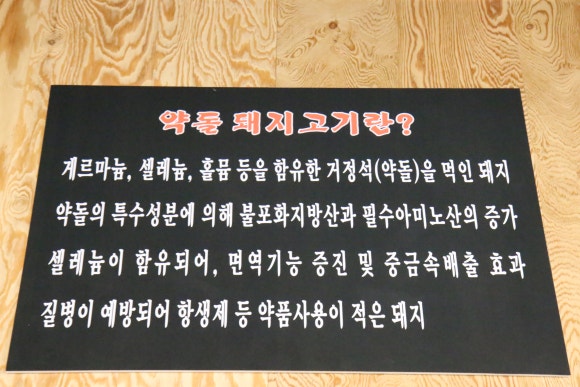 약돌 돼지고기란?
게르마늄, 셀레늄, 홀뮴 등을 함유한 거정석(약돌)을 먹인 돼지
약돌의 특수성분에 의해 불포화지방산과 필수아미노산의 증가
셀레늄이 함유되어, 면역기능 증진 및 중금속배출 효과
질병이 예방되어 항생제 등 약품사용이 적은 돼지